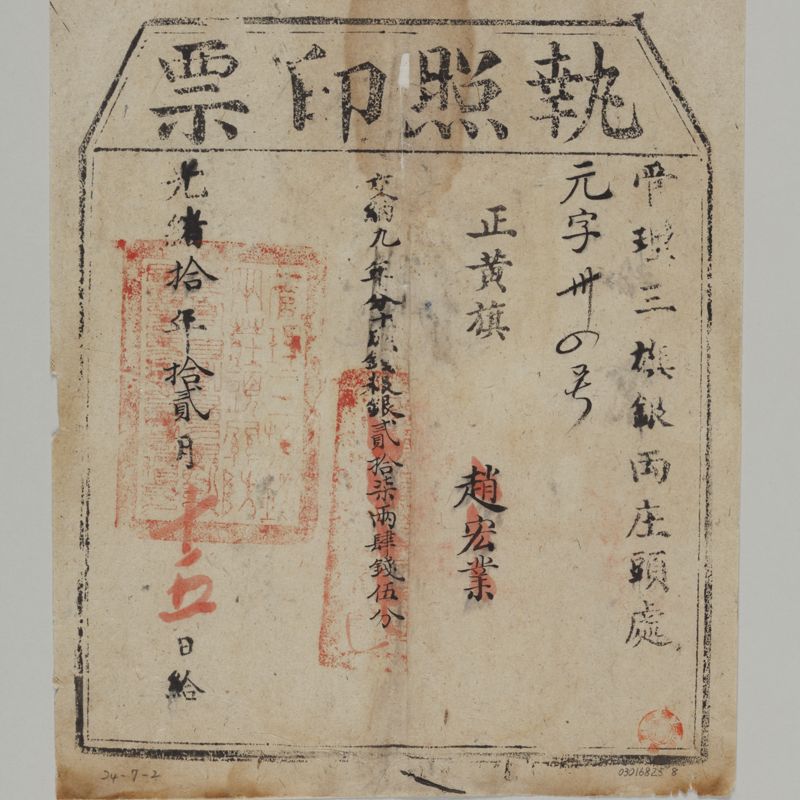 執照印票
管理三旗銀兩庄頭處
元字卅四号
正黄旗 趙宏業
交納九年分銀貳拾柒兩肆錢伍分
光緒拾年拾貳月十五日給
24-7-2
03016823 8